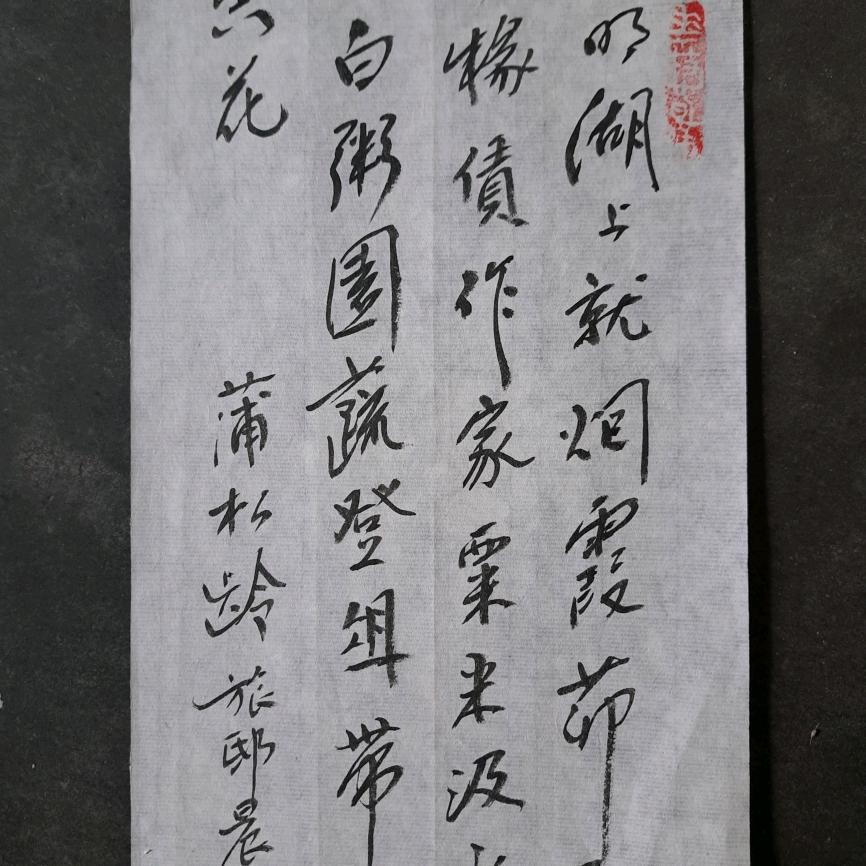 明湖上就烟霞茆
椽债作家粟米汲
白粥园蔬登俎带
花
蒲松龄旅邸晨